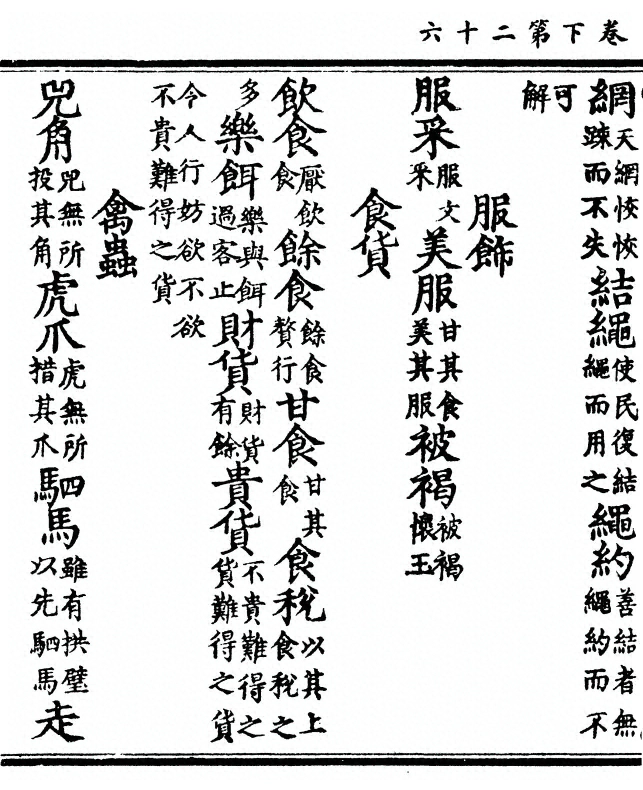 卷下第二十六
網天網恢恢疎而不失結繩使民復結繩而用之繩約善結者無繩約而不
可解
服飾
服采服文采美服甘其食美其服被褐被褐懷玉
食貨
飲食厭飲食餘食餘食贅行甘食甘其食食稅以其上食稅之
多樂餌樂與餌過客止財貨財貨有餘貴貨不貴難得之貨難得之貨
令人行妨欲不欲不貴難得之貨
禽蟲
兕角兕無所投其角虎爪虎無所措其爪駟馬雖有拱璧以先駟馬走